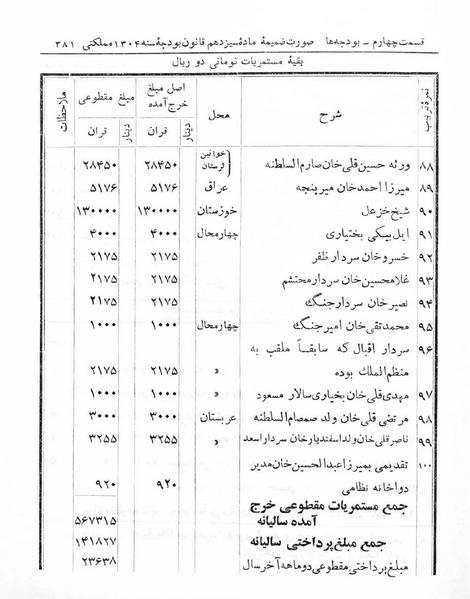 قسمت چهارم - بودجه‌ها صورت ضمیمهٔ مادهٔ سیزدهم قانون بودجهٔ سنه ۱۳۰۴ مملکتی ۳۸۱
بقیهٔ مستمریات تومانی دو ریال
نمره ترتیب شرح محل اصل مبلغ خرج آمده مبلغ مقطوعی ملاحظات
قران دینار قران دینار
۸۸ ورثه حسین قلی خان صارم السلطنه خوانین لرستان ۲۸۴۵۰ ۲۸۴۵۰
۸۹ میرزا احمد خان میرپنجه عراق ۵۱۷۶ ۵۱۷۶
۹۰ شیخ خزعل خوزستان ۱۳۰۰۰۰ ۱۳۰۰۰۰
۹۱ ایل بیگی بختیاری چهار محال ۴۰۰۰ ۴۰۰۰
۹۲ خسرو خان سردار ظفر ۲۱۷۵ ۲۱۷۵
۹۳ غلامحسین خان سردار محتشم ۲۱۷۵ ۲۱۷۵
۹۴ نصیر خان سردار جنگ ۲۱۷۵ ۲۱۷۵
۹۵ محمد تقی خان امیر جنگ چهار محال ۱۰۰۰ ۱۰۰۰
۹۶ سردار اقبال که سابقاً ملقب به
منظم الملک بوده » ۲۱۷۵ ۲۱۷۵
۹۷ مهدی قلی خان بخیاری سالار مسعود » ۱۰۰۰ ۱۰۰۰
۹۸ مرتضی قلی خان ولد صمصام السلطنه عربستان ۳۰۰۰ ۳۰۰۰
۹۹ ناصر قلی خان ولد اسفندیار خان سردار اسعد » ۳۲۵۵ ۳۲۵۵
۱۰۰ تقدیمی بمیرزا عبدالحسین خان مدیر
دواخانه نظامی ۹۲۰ ۹۲۰
جمع مستمریات مقطوعی خرج
آمده سالیانه ۵۶۷۳۱۵
جمع مبلغ پرداختی سالیانه ۱۴۱۸۲۷
مبلغ پرداختی مقطوعی دو ماهه آخر سال ۲۳۶۳۸